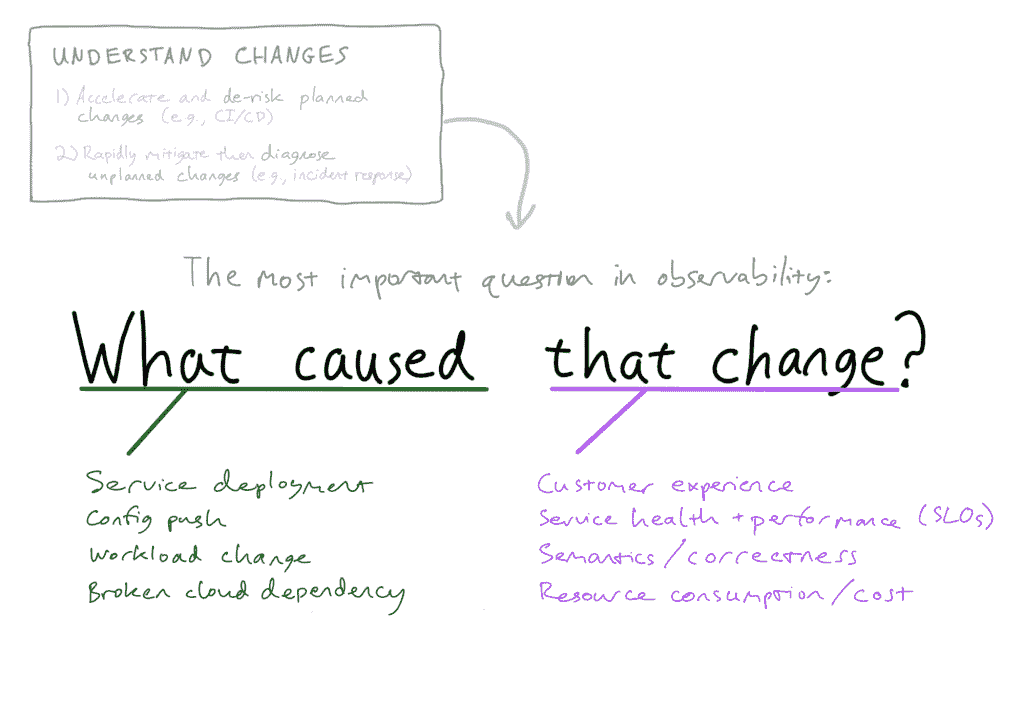 UNDERSTAND CHANGES
1) Accelerate and de-risk planned
changes (e.g., CI/CD)
2) Rapidly mitigate then diagnose
unplanned changes (e.g., incident response)
The most important question in observability:
What caused that change?
Service deployment
Config push
Workload change
Broken cloud dependency
Customer experience
Service health + performance (SLOs)
Semantics/correctness
Resource consumption/cost